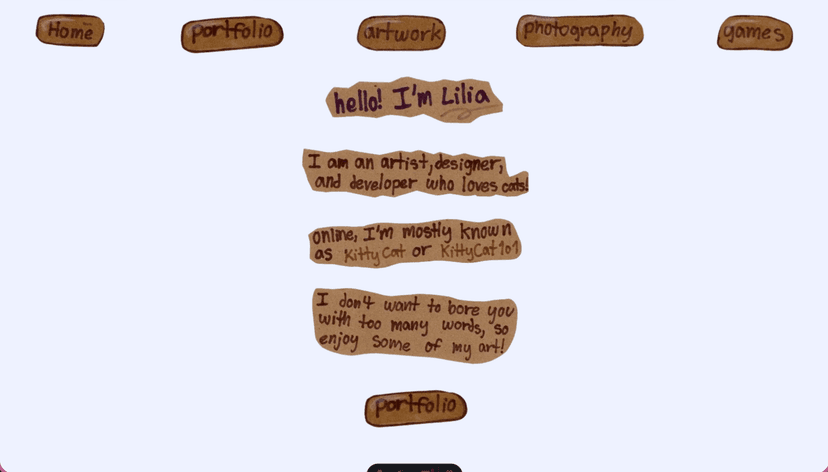 Home
portfolio
artwork
photography
games
hello! I'm Lilia
I am an artist, designer,
and developer who loves cats!
online, I'm mostly known
as KittyCat or KittyCat101
I don't want to bore you
with too many words, so
enjoy some of my art!
portfolio